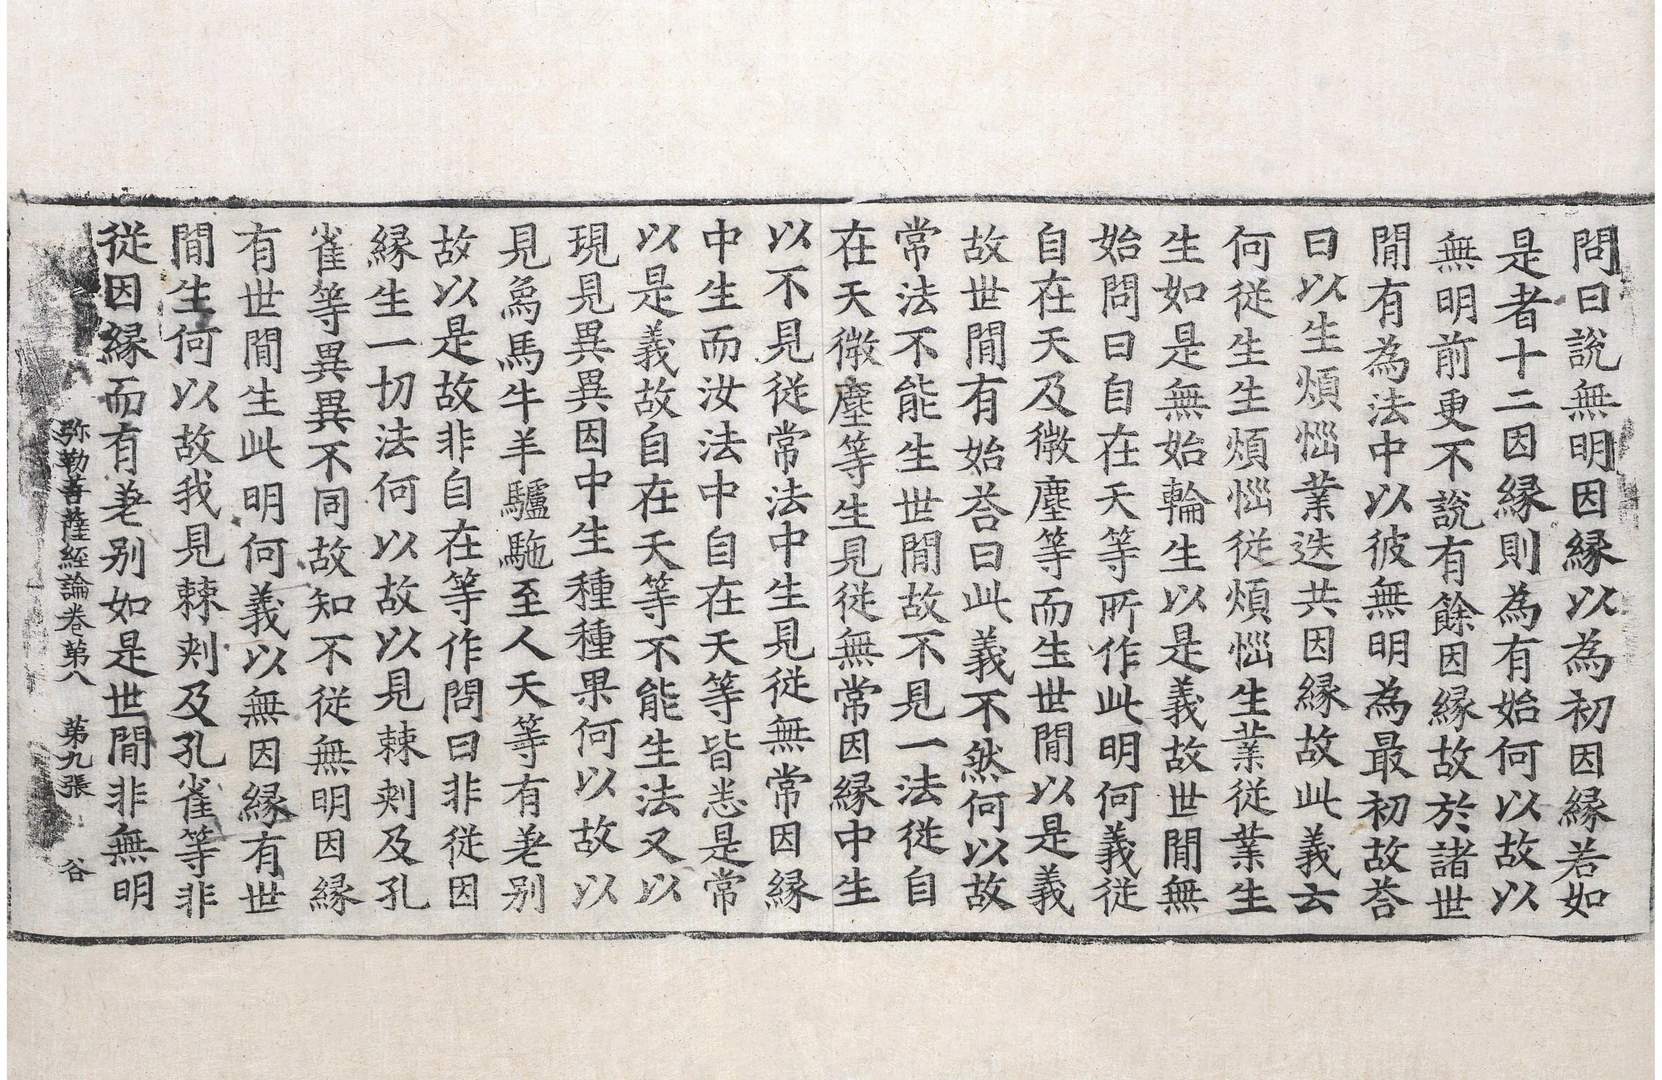 問曰說無明因縁以為初因縁若如
是者十二因縁則為有始何以故以
無明前更不說有餘因縁故於諸世
閒有為法中以彼無明為最初故荅
曰以生煩惱業迭共因縁故此義云
何從生生煩惱從煩惱生業從業生
生如是無始輪生以是義故世閒無
始問曰自在天等所作此明何義從
自在天及微塵等而生世閒以是義
故世閒有始荅曰此義不然何以故
常法不能生世閒故不見一法從自
在天微塵等生見從無常因縁中生
以不見從常法中生見從無常因縁
中生而汝法中自在天等皆悉是常
以是義故自在天等不能生法又以
現見異異因中生種種果何以故以
見象馬牛羊驢駞至人天等有差别
故以是故非自在等作問曰非從因
縁生一切法何以故以見棘刺及孔
雀等異異不同故知不從無明因縁
有世閒生此明何義以無因縁有世
閒生何以故我見棘刺及孔雀等非
從因縁而有差别如是世閒非無明
弥勒菩薩經論卷第八 第九張 谷